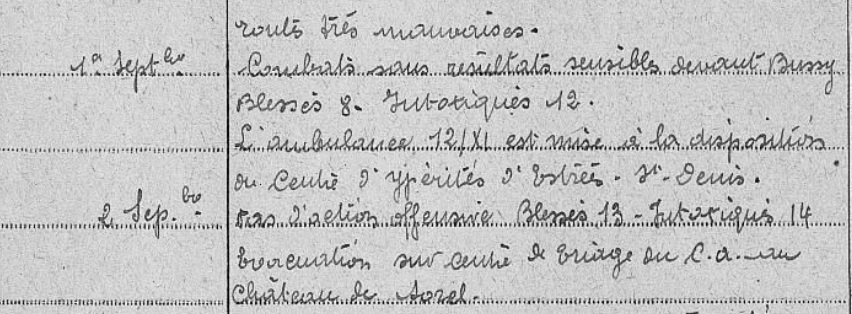 routes très mauvaises.
1er Septbre Combats sans résultats sensibles devant Bussy
Blessés 8 - Intoxiqués 12.
L'ambulance 12/XI est mise à la disposition
du Centre d'Ypérités d'Estrées - St-Denis.
2 Sep.bre Pas d'action offensive Blessés 13 - Intoxiqués 14
Evacuation sur centre de triage du C.A. au
Château de Sorel.